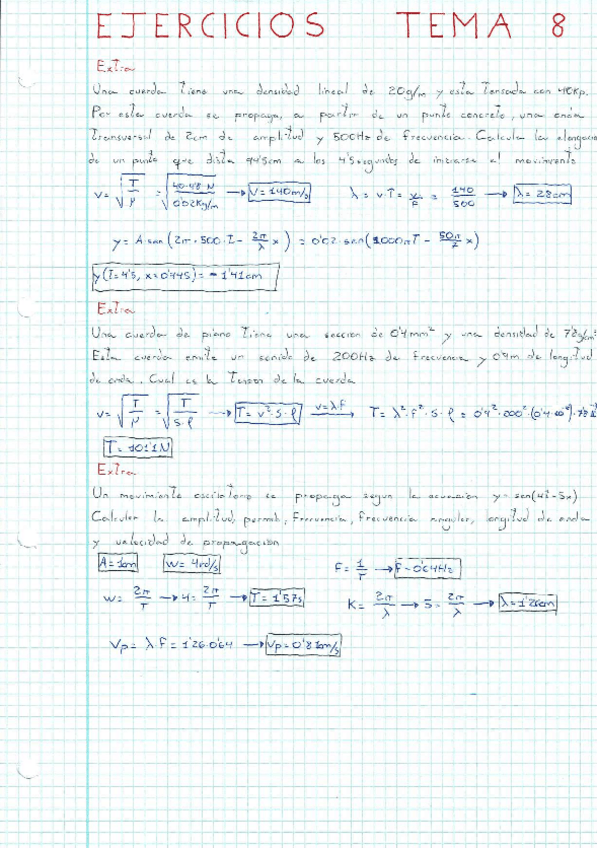 EJERCICIOS TEMA 8
Extra
Una cuerda tiene una densidad lineal de 20g/m y esta tensada con 40Kp.
Por esta cuerda se propaga, a partir de un punto concreto, una onda
transversal de 2cm de amplitud y 500Hz de frecuencia. Calcula la elongacion
de un punto que dista 44'5cm a los 4'5 segundos de iniciarse el movimiento
v = √(T/μ) = √(40·9'8 N / 0'02Kg/m) → V = 140m/s λ = v·T = v/F = 140/500 → λ = 28cm
y = A·sen(2π·500·T - 2π/λ x) = 0'02·sen(1000πT - 50π/7 x)
y(T=4'5, x=0'445) = -1'41cm
Extra
Una cuerda de piano tiene una seccion de 0'4mm² y una densidad de 7'8g/cm³
Esta cuerda emite un sonido de 200Hz de frecuencia y 0'4m de longitud
de onda. Cual es la tension de la cuerda
v = √(T/μ) = √(T/S·ρ) → T = v²·S·ρ v=λF → T = λ²·F²·S·ρ = 0'4²·200²·
T = 10'1N
Extra
Un movimiento oscilatorio se propaga segun la ecuacion y = sen(4t-5x)
Calcular la amplitud, periodo, frecuencia, frecuencia angular, longitud de onda
y velocidad de propagacion
A = 1cm w = 4rd/s F = 1/T → F = 0'64Hz
w = 2π/T → 4 = 2π/T → T = 1'57s K = 2π/λ → 5 = 2π/λ → λ = 1'26cm
Vp = λ·F = 1'26·0'64 → Vp = 0'81cm/s